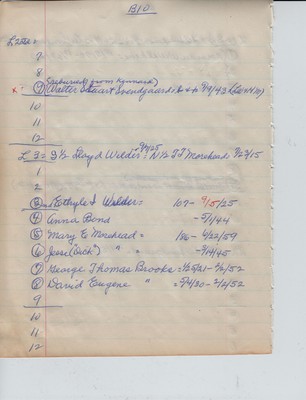 B10
L 2
7
8
(returned from Denmark)
x- 9 Walter Stuart Svendgaard
10
11
12
L 3 = S ½ Lloyd Wilder - N ½ T J Morehead 9/23/15
1
2
3 Ethyle I Wilder = 107 - 9/15/25
4 Anna Bond - 5/1/44
5 Mary E Morehead = 186 - 6/22/59
6 Jesse (Dick) " " - 9/14/45
7 George Thomas Brooks = 1/25/21 - 2/6/52
8 David Eugene " = 5/4/30 - 2/2/52
9
10
11
12